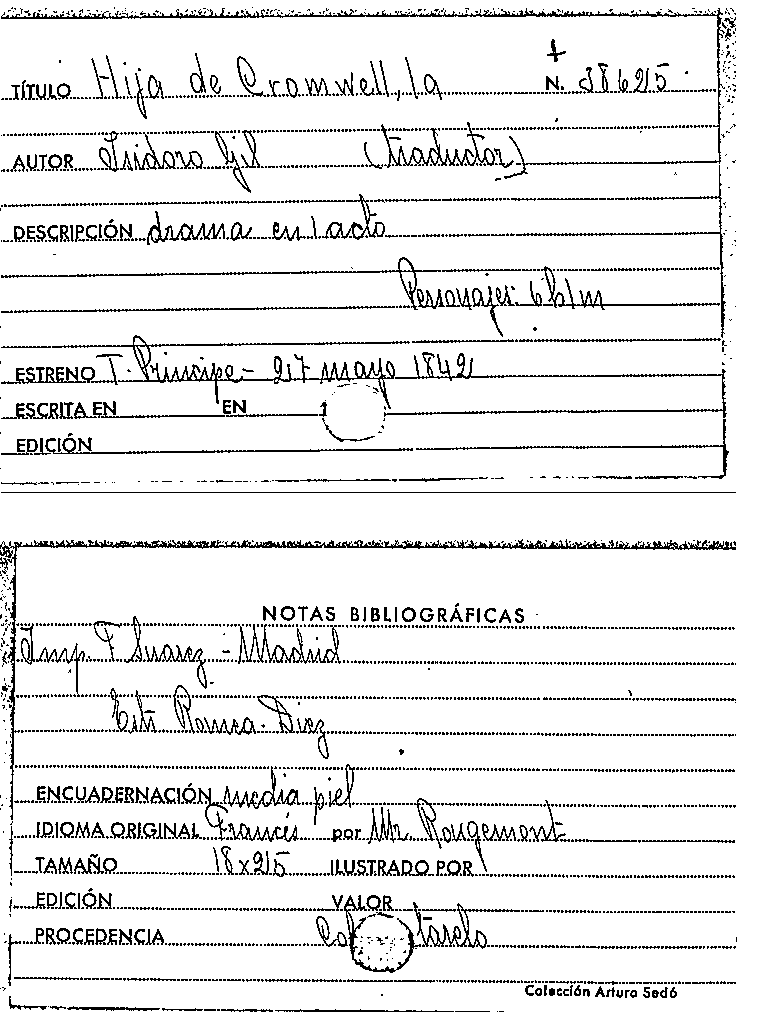 TÍTULO Hija de Cromwell, la N. 38625
AUTOR Isidoro Gil (traductor)
DESCRIPCIÓN drama en 1 acto
Personajes: 6 h 1 m
ESTRENO T. Principe - 27 mayo 1842
ESCRITA EN EN
EDICIÓN
NOTAS BIBLIOGRÁFICAS
Imp. F Suarez - Madrid
Romea - Diez
ENCUADERNACIÓN media piel
IDIOMA ORIGINAL Francés por Mr. Rougemont
TAMAÑO 18x25 ILUSTRADO POR
EDICIÓN VALOR
PROCEDENCIA
Colección Arturo Sedó